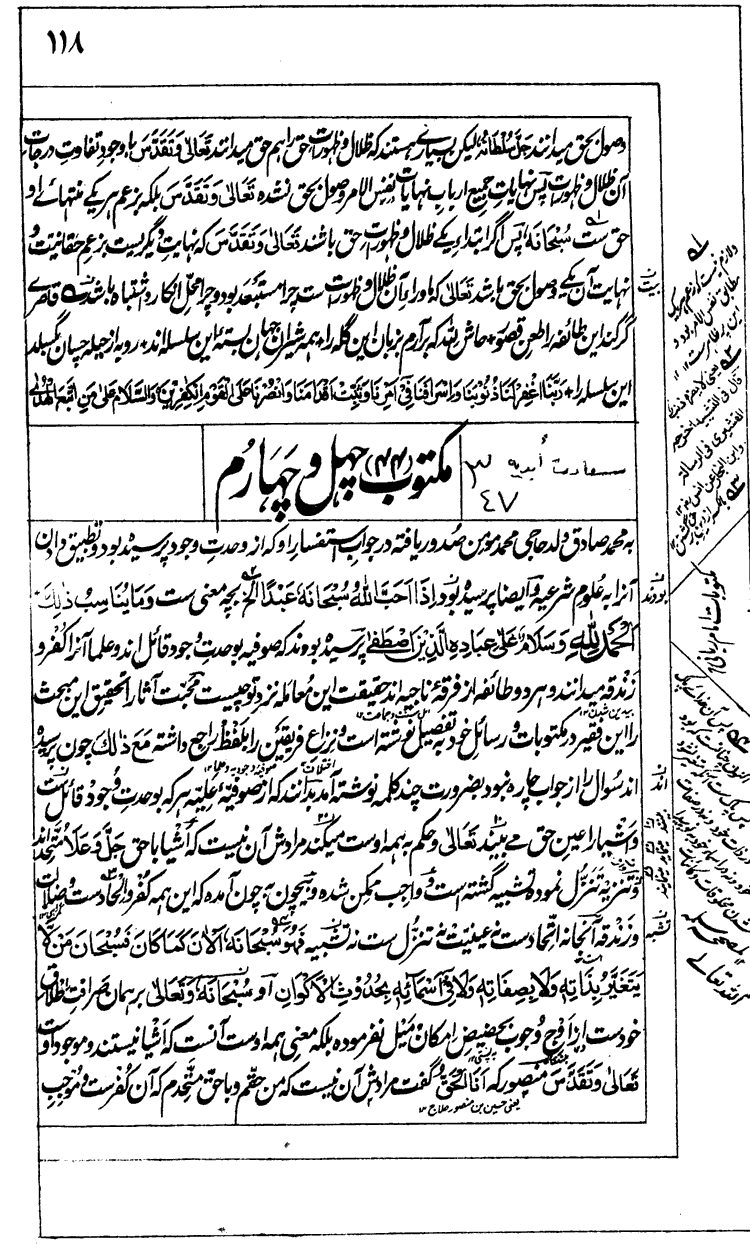 ۱۱۸
وصول بحق میدانند جَلَّ سُلْطَانُهٗ لیکن بسیارے هستند که ظلال و ظهورات حق را هم حق میدانند تَعَالیٰ وَتَقَدَّسَ با وجود تفاوت درجات
آن ظلال و ظهورات پس نهایات جمیع ارباب نهایات نفس الامر وصول بحق نشده تَعَالیٰ وَتَقَدَّسَ بلکه بزعم هر یکے منتهائے او
حق ست سُبْحَانَهٗ پس اگر ابتداء یکے ظلال و ظهورات حق باشند تَعَالیٰ وَتَقَدَّسَ که نهایت دیگریست بزعم حقانیت و
نهایت آن یکے وصول بحق باشد تعالی که ماوراء آن ظلال و ظهورات ست چرا مستبعد بود و چرا محل انکار و اشتباه باشد قاصرے
گر کند این طائفه را طعن قصور ٭ حاش لله که برآرم بزبان این گله را ٭ همه شیران جهان بستهٔ این سلسله اند ٭ روبه از حیله چسان بگسلد
این سلسله را ٭ رَبَّنَا اغْفِرْ لَنَا ذُنُوبَنَا وَاِسْرَافَنَا فِیْ اَمْرِنَا وَثَبِّتْ اَقْدَامَنَا وَانْصُرْنَا عَلَی الْقَوْمِ الْکٰفِرِیْنَ وَالسَّلَامُ عَلیٰ مَنِ اتَّبَعَ الْهُدیٰ
سعادت أبدیه ۳
٤٧
مکتوب (۴۴) چهل و چهارم
به محمد صادق ولد حاجی محمد مومن صدور یافته در جواب استفسار او که از وحدت وجود پرسیده بود و تطبیق دادن
آنرا به علوم شرعیه و ایضا پرسیده بود اِذَا اَحَبَّ اللّٰهُ سُبْحَانَهٗ عَبْدًا الخ بچه معنی ست وَمَا یُنَاسِبُ ذٰلِکَ
اَلْحَمْدُ لِلّٰهِ وَسَلَامٌ عَلیٰ عِبَادِهِ الَّذِیْنَ اصْطَفیٰ پرسیده بودند که صوفیه بوحدت وجود قائل اند و علما آنرا کفر و
زندقه میدانند و هر دو طائفه از فرقهٔ ناجیه اند حقیقت این معامله نزد تو چیست محبت آثارا تحقیق این مبحث
را این فقیر در مکتوبات و رسائل خود به تفصیل نوشته است و نزاع فریقین را بلفظ راجع داشته مَعَ ذٰلِکَ چون پرسیده
اند سوال را از جواب چاره نبود بضرورت چند کلمه نوشته آمد بدانند که از صوفیهٔ عَلِیَّه هر که بوحدت وجود قائل ست
و اشیا را عین حق مے بیند تعالی و حکم به همه اوست میکند مرادش آن نیست که اشیا با حق جَلَّ وَعَلَا متحد اند
و تنزیه تنزل نموده تشبیه گشته است و واجب ممکن شده و بیچون به چون آمده که این همه کفر و الحاد ست و ضلالت
و زندقه آنجا نه اتحاد ست نه عینیت نه تنزل ست نه تشبیه فَهُوَ سُبْحَانَهٗ اَلْآنَ کَمَا کَانَ فَسُبْحَانَ مَنْ لَا
یَتَغَیَّرُ بِذَاتِهٖ وَلَا بِصِفَاتِهٖ وَلَا فِیْ اَسْمَائِهٖ بِحُدُوْثِ الْاَکْوَانِ او سُبْحَانَهٗ وَتَعَالیٰ بر همان صرافت اطلاق
خودست از اوج وجوب بحضیض امکان میل نفرموده بلکه معنی همه اوست آنست که اشیا نیستند و موجود اوست
تَعَالیٰ وَتَقَدَّسَ منصور که اَنَا الْحَقُّ گفت مرادش آن نیست که من حقم و با حق متحدم که آن کفرست و موجب
یعنی حسین بن منصور حلاج ۱۲
مکتوبات امام ربانی